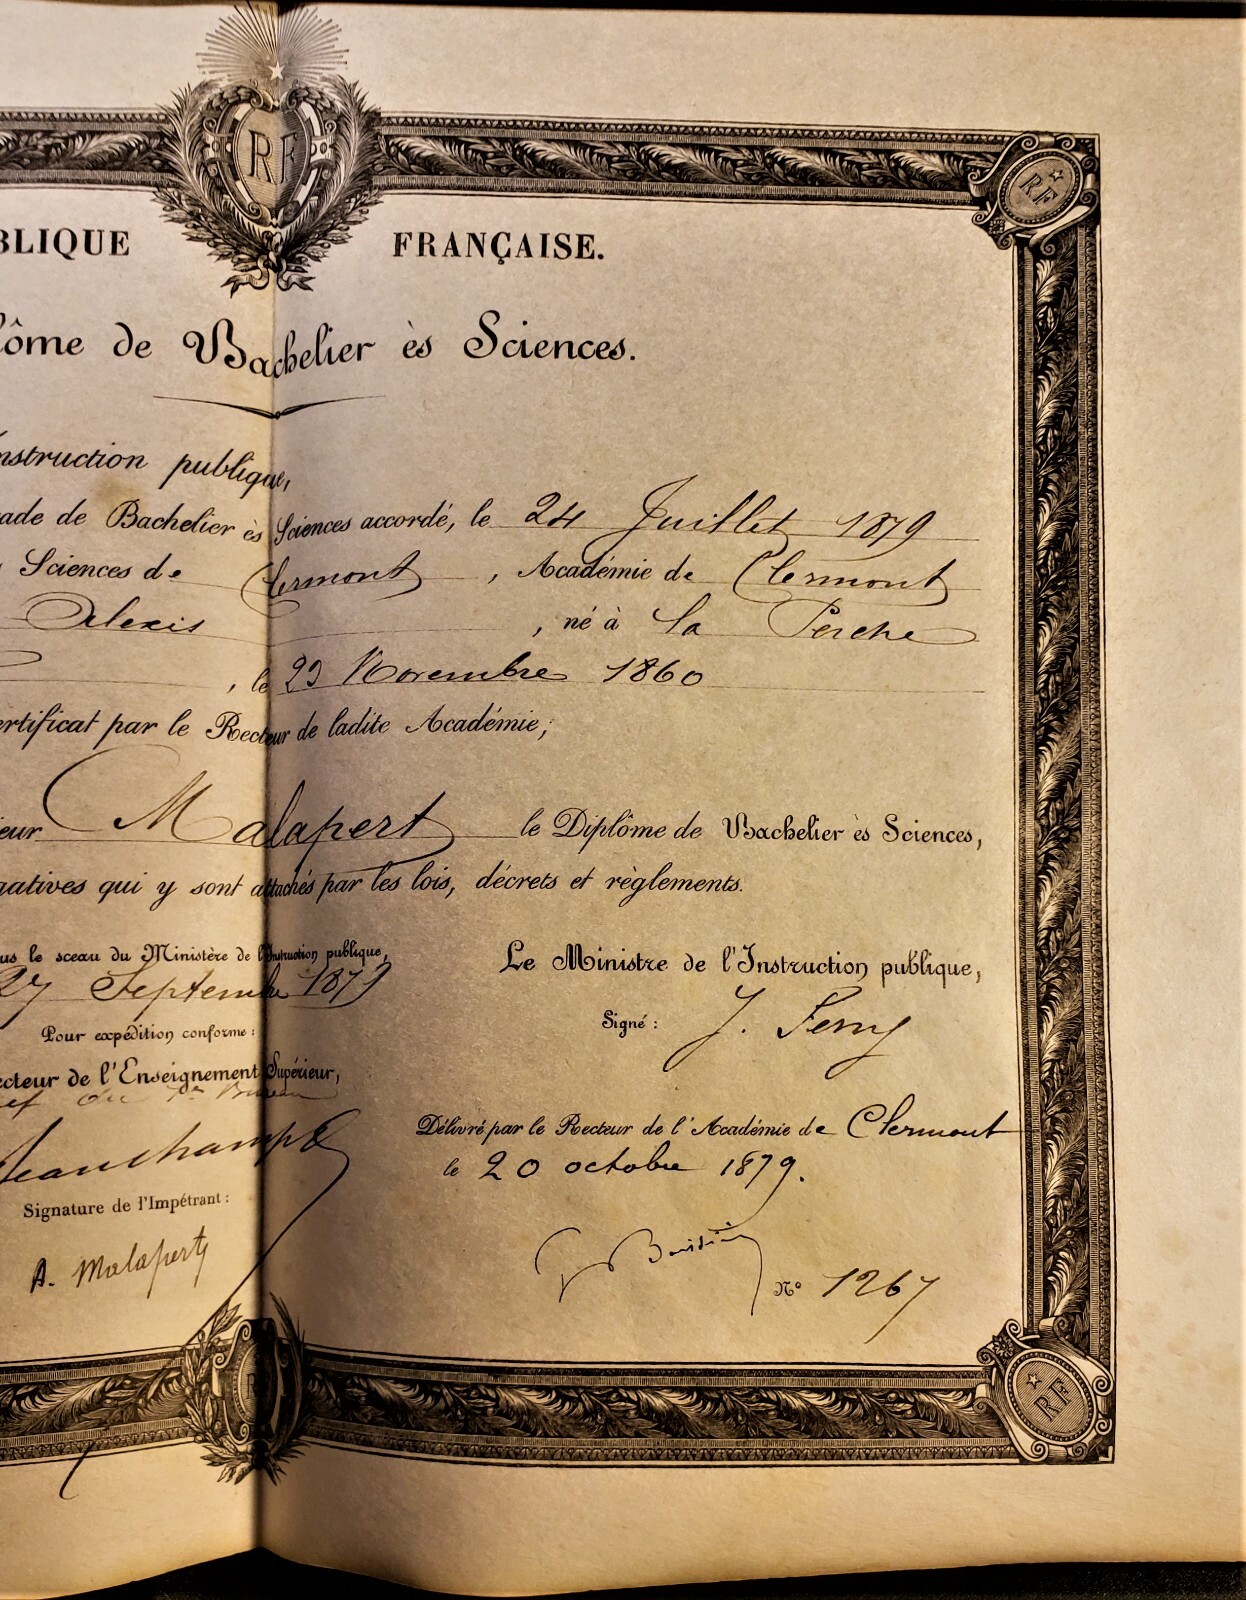 RF
RF
BLIQUE FRANÇAISE.
lôme de Bachelier ès Sciences.
nstruction publique,
ade de Bachelier ès Sciences accordé, le 24 Juillet 1879
Sciences de Clermont, Académie de Clermont
Alexis, né à La Perche
, le 23 Novembre 1860
ertificat par le Recteur de ladite Académie;
ieur Malapert le Diplôme de Bachelier ès Sciences,
gatives qui y sont attachés par les lois, décrets et règlements.
us le sceau du Ministère de l'Instruction publique,
27 Septembre 1879
Le Ministre de l'Instruction publique,
Signé : J. Ferry
Pour expédition conforme :
ecteur de l'Enseignement Supérieur,
ef du 1er Bureau
Beauchamps
Délivré par le Recteur de l'Académie de Clermont
le 20 octobre 1879.
Signature de l'Impétrant :
A. Malapert
N° 1267
RF
RF